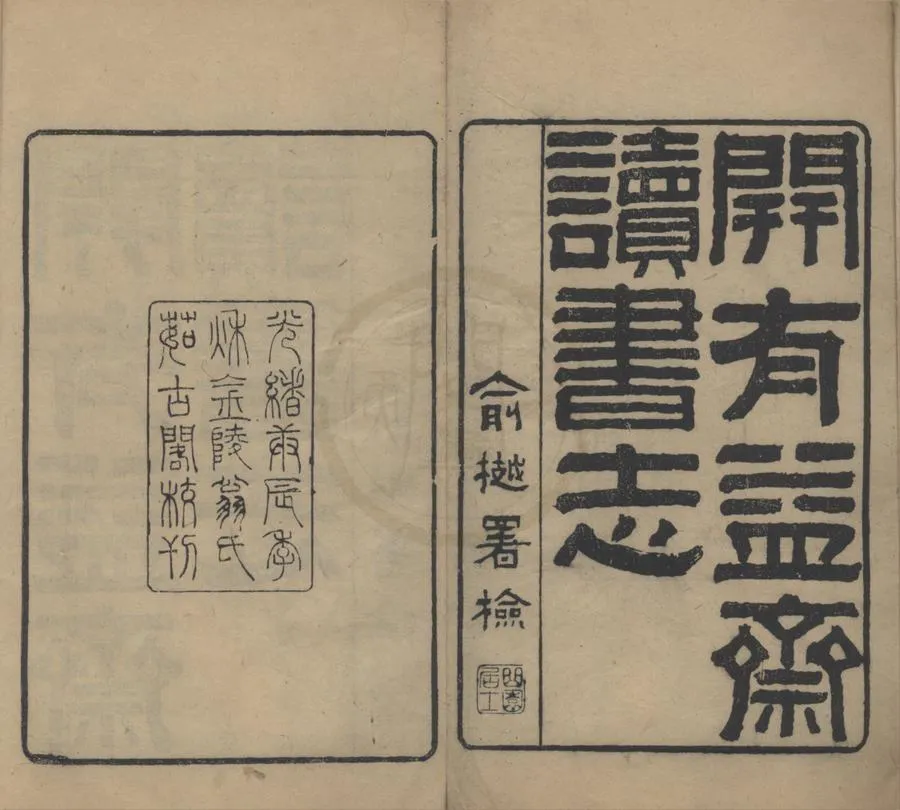 開有益齋
讀書志
俞樾署檢
曲園居士
光緒庚辰季
秌金陵翁氏
茹古閣校刊